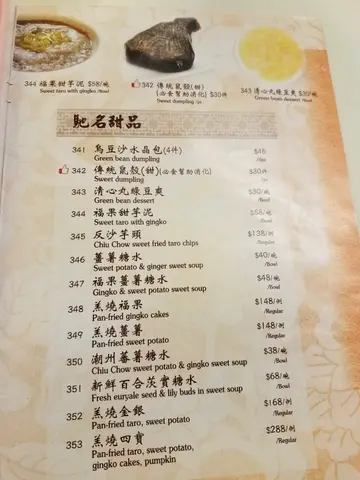 344 福果甜芋泥 $58/碗
Sweet taro with gingko /Bowl
342 傳統鼠殼(甜)
(必食幫助消化) $30/件
Sweet dumpling /pc
343 清心丸綠豆爽 $30/碗
Green bean dessert /Bowl
馳名甜品
341 烏豆沙水晶包(4件) $48
Green bean dumpling /4pc
342 傳統鼠殼(甜)(必食幫助消化) $30/件
Sweet dumpling /pc
343 清心丸綠豆爽 $30/碗
Green bean dessert /Bowl
344 福果甜芋泥 $58/碗
Sweet taro with gingko /Bowl
345 反沙芋頭 $138/例
Chiu Chow sweet fried taro chips /Regular
346 薑薯糖水 $40/碗
Sweet potato & ginger sweet soup /Bowl
347 福果薑薯糖水 $48/碗
Gingko & sweet potato sweet soup /Bowl
348 羔燒福果 $148/例
Pan-fried gingko cakes /Regular
349 羔燒薑薯 $148/例
Pan-fried sweet potato /Regular
350 潮州蕃薯糖水 $38/碗
Chiu Chow sweet potato & gingko sweet soup /Bowl
351 新鮮百合茨實糖水 $68/碗
Fresh euryale seed & lily buds in sweet soup /Bowl
352 羔燒金銀 $168/例
Pan-fried taro, sweet potato /Regular
353 羔燒四寶 $288/例
Pan-fried taro, sweet potato, /Regular
gingko cakes, pumpkin